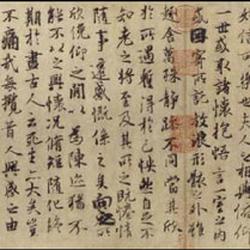 信可樂也夫人之相與俯仰
一世或取諸懷抱悟言一室之內
或因寄所託放浪形骸之外雖
趣舍萬殊靜躁不同當其欣
於所遇暫得於己怏然自足不
知老之將至及其所之既惓情
隨事遷感慨係之矣向之所
欣俛仰之閒以為陳迹猶不
能不以之興懷況脩短隨化終
期於盡古人云死生亦大矣豈
不痛哉每攬昔人興感之由